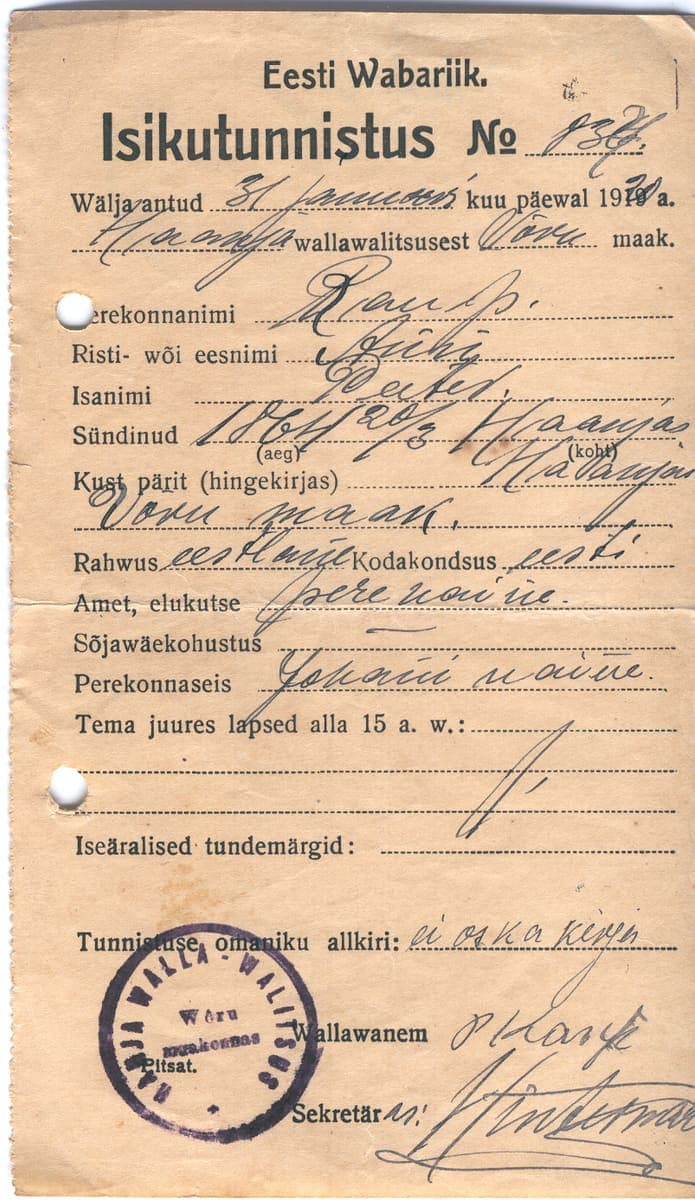 Eesti Wabariik.
Isikutunnistus No
Wälja antud 31 jaanuari kuu päewal 1920 a.
Haanja wallawalitsusest Võru maak.
Perekonnanimi Raup.
Risti- wõi eesnimi
Isanimi Peeter.
Sündinud 1864 20/3 Haanjas
(aeg) (koht)
Kust pärit (hingekirjas) Haanjas
Võru maak.
Rahwus eestlane Kodakondsus eesti
Amet, elukutse perenaine.
Sõjawäekohustus —
Perekonnaseis Johani naine.
Tema juures lapsed alla 15 a. w.:
Iseäralised tundemärgid:
Tunnistuse omaniku allkiri: ei oska kirja
HANJA WALLA-WALITSUS
Wõru
maakonnas
Wallawanem
Pitsat.
Sekretär